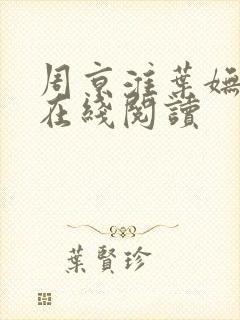 周京淮葉嫵
在綫閱讀
葉賢珍